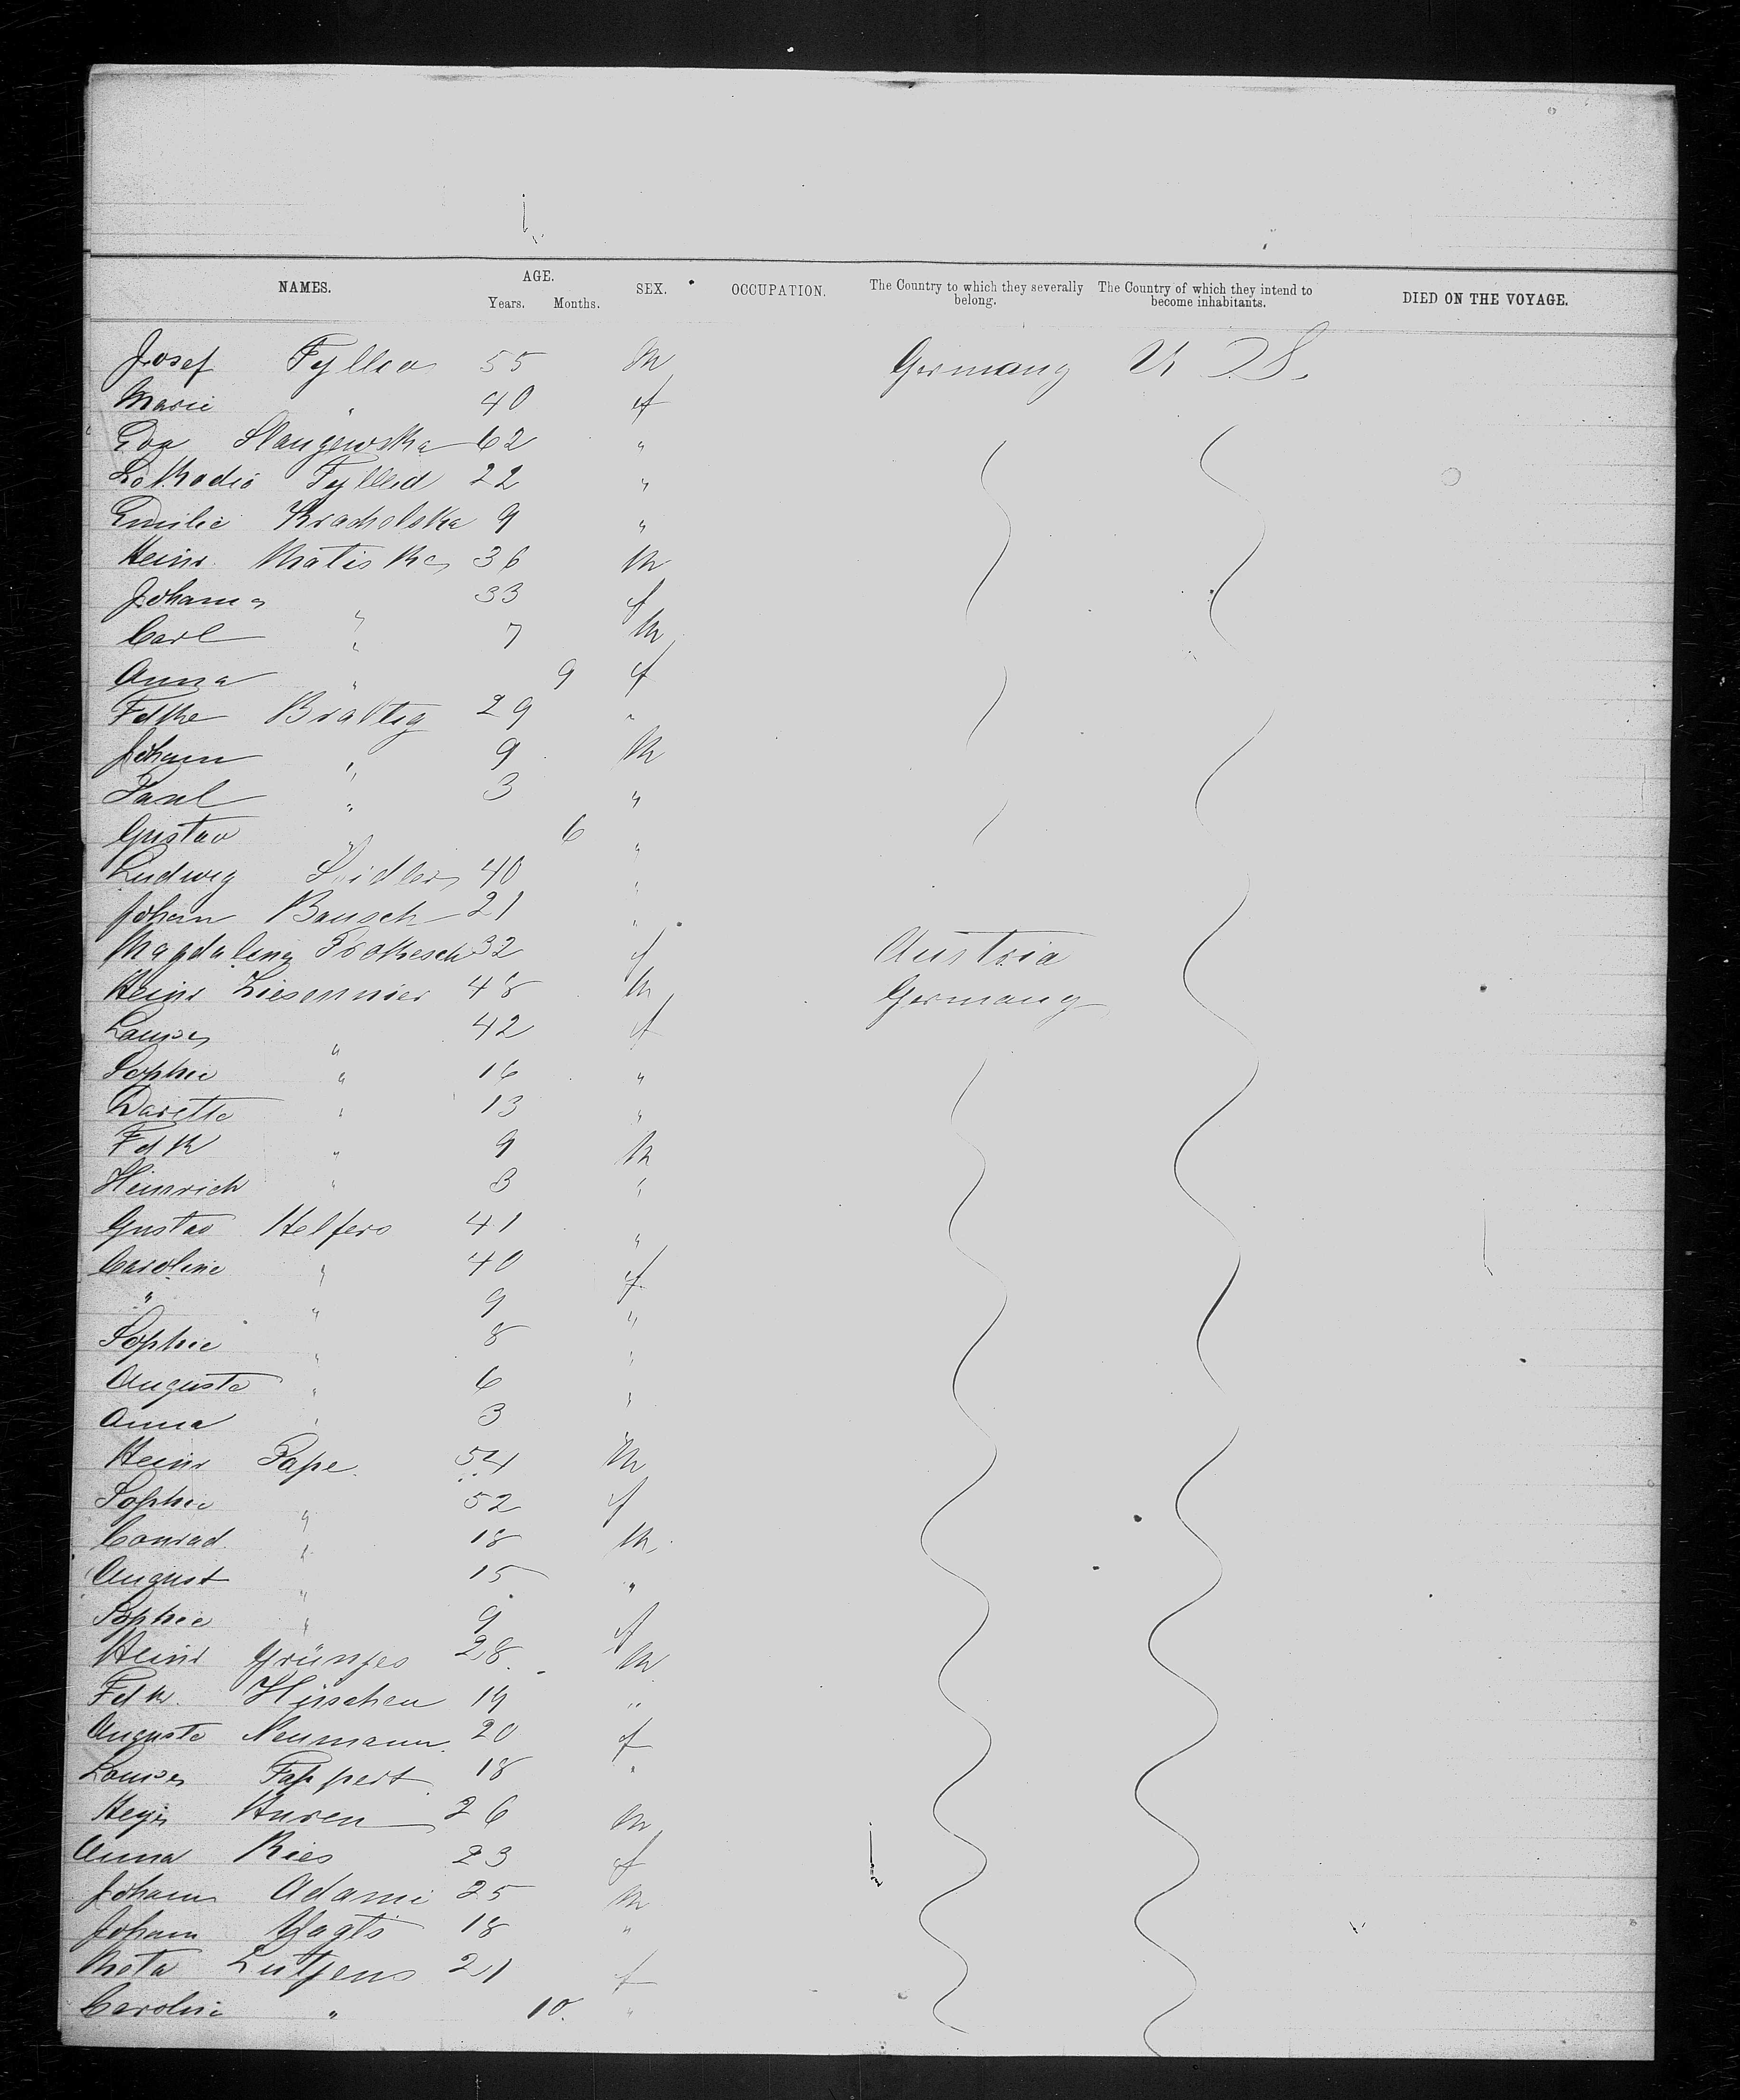 NAMES. AGE. Years. Months. SEX. OCCUPATION. The Country to which they severally belong. The Country of which they intend to become inhabitants. DIED ON THE VOYAGE.
Josef 55 m Germany U. S.
Marie " 40 f
Eva 62 "
22 "
Emilie 9 "
Heinr. 36 m
Johanna " 33 f
Carl " 7 m
Anna " 9 f
Fdke 29 "
Johann " 9 m
Paul " 3 "
Gustav " 6 "
Ludwig 40 "
Johan Bausch 21 "
Magdalena Prokesch 32 f Austria
Heinr Liesenmier 48 m Germany
Louise " 42 f
Sophie " 16 "
Dorette " 13 "
Fdk " 9 m
Heinrich " 3 "
Gustav Helfers 41 "
Caroline " 40 f
" " 9 "
Sophie " 8 "
Auguste " 6 "
Anna " 3 "
Heinr Pape 54 m
Sophie " 52 f
Conrad " 18 m
August " 15 "
Sophie " 9 f
Heinr Grünjes 28 m
Fdk. 19 "
Auguste Neumann 20 f
Louise Tappert 18 "
26 m
Anna Ries 23 f
Johann Adami 25 m
Johann Vagts 18 "
Meta Lutjens 21 f
Caroline " 10. "